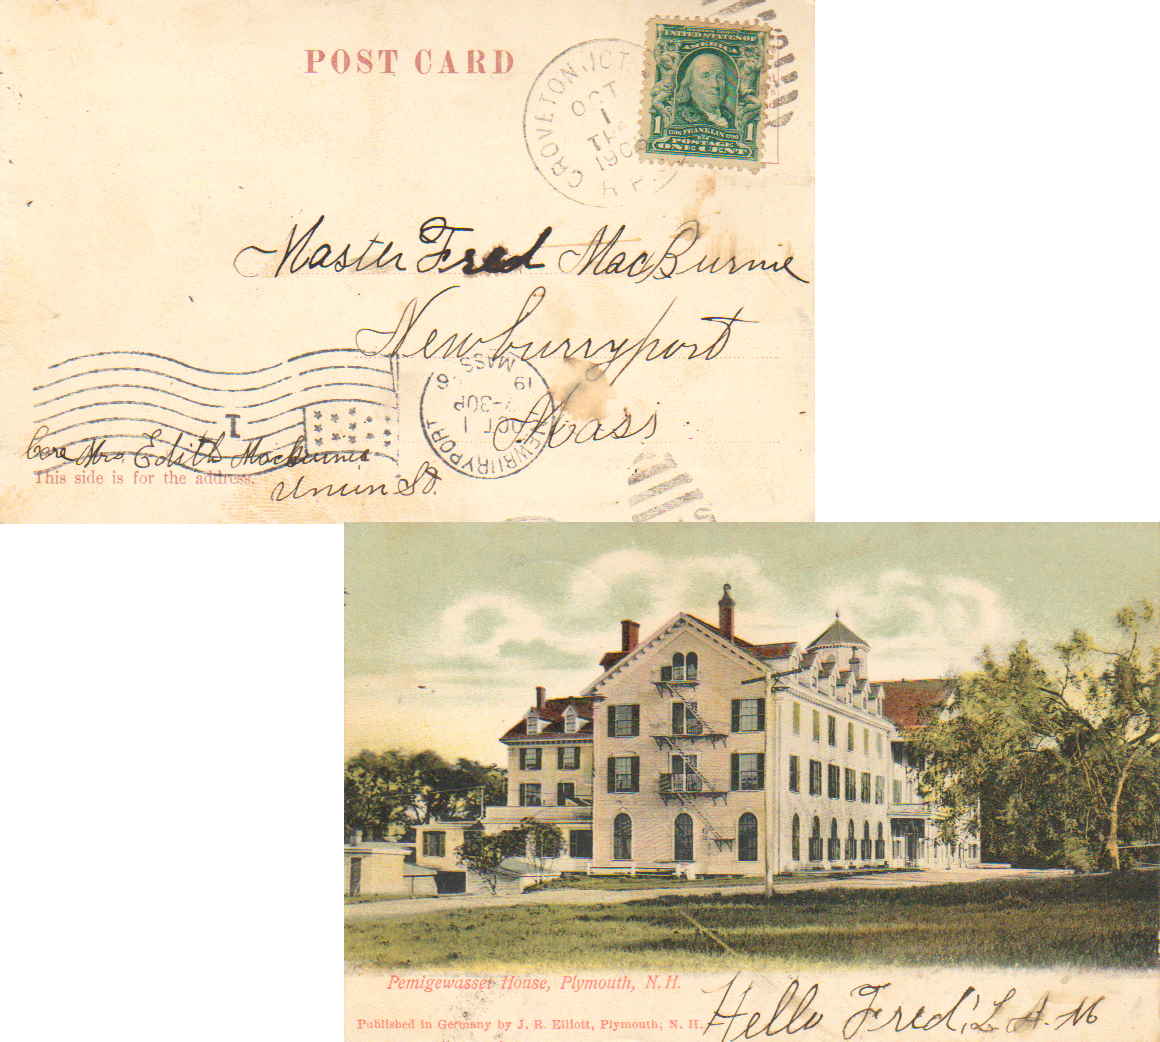 POST CARD
GROVETON JCT.
OCT
1
1906
UNITED STATES OF
AMERICA
1 FRANKLIN
POSTAGE
ONE CENT
Master Fred MacBurnie
Newburryport
Mass
NEWBURYPORT MASS
OCT 1
19
1
Care Mrs. Edith MacBurnie
This side is for the address.
Union St.
Pemigewasset House, Plymouth, N. H.
Published in Germany by J. R. Elliott, Plymouth, N. H.
Hello Fred, L A. M